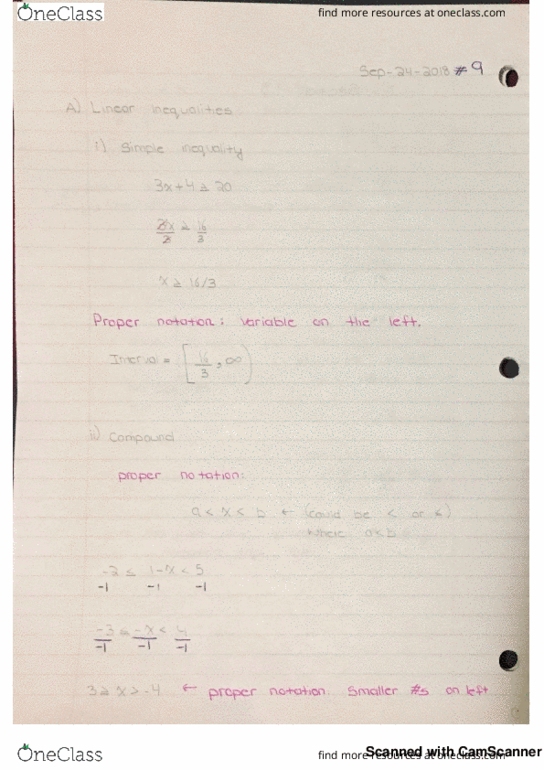 OneClass
find more resources at oneclass.com
Sep-24-2018 #9
A) Linear inequalities
i) Simple inequality
3x+4 ≥ 20
3x/3 ≥ 16/3
x ≥ 16/3
Proper notation: Variable on the left.
Interval = [16/3, ∞)
ii) Compound
proper notation:
a < x < b ← (could be < or ≤)
where a<b
-2 ≤ 1-x < 5
-1 -1 -1
-3/-1 ≤ -x/-1 < 4/-1
3 ≥ x > -4 ← proper notation. Smaller #s on left
OneClass
find more resources at oneclass.com
Scanned with CamScanner